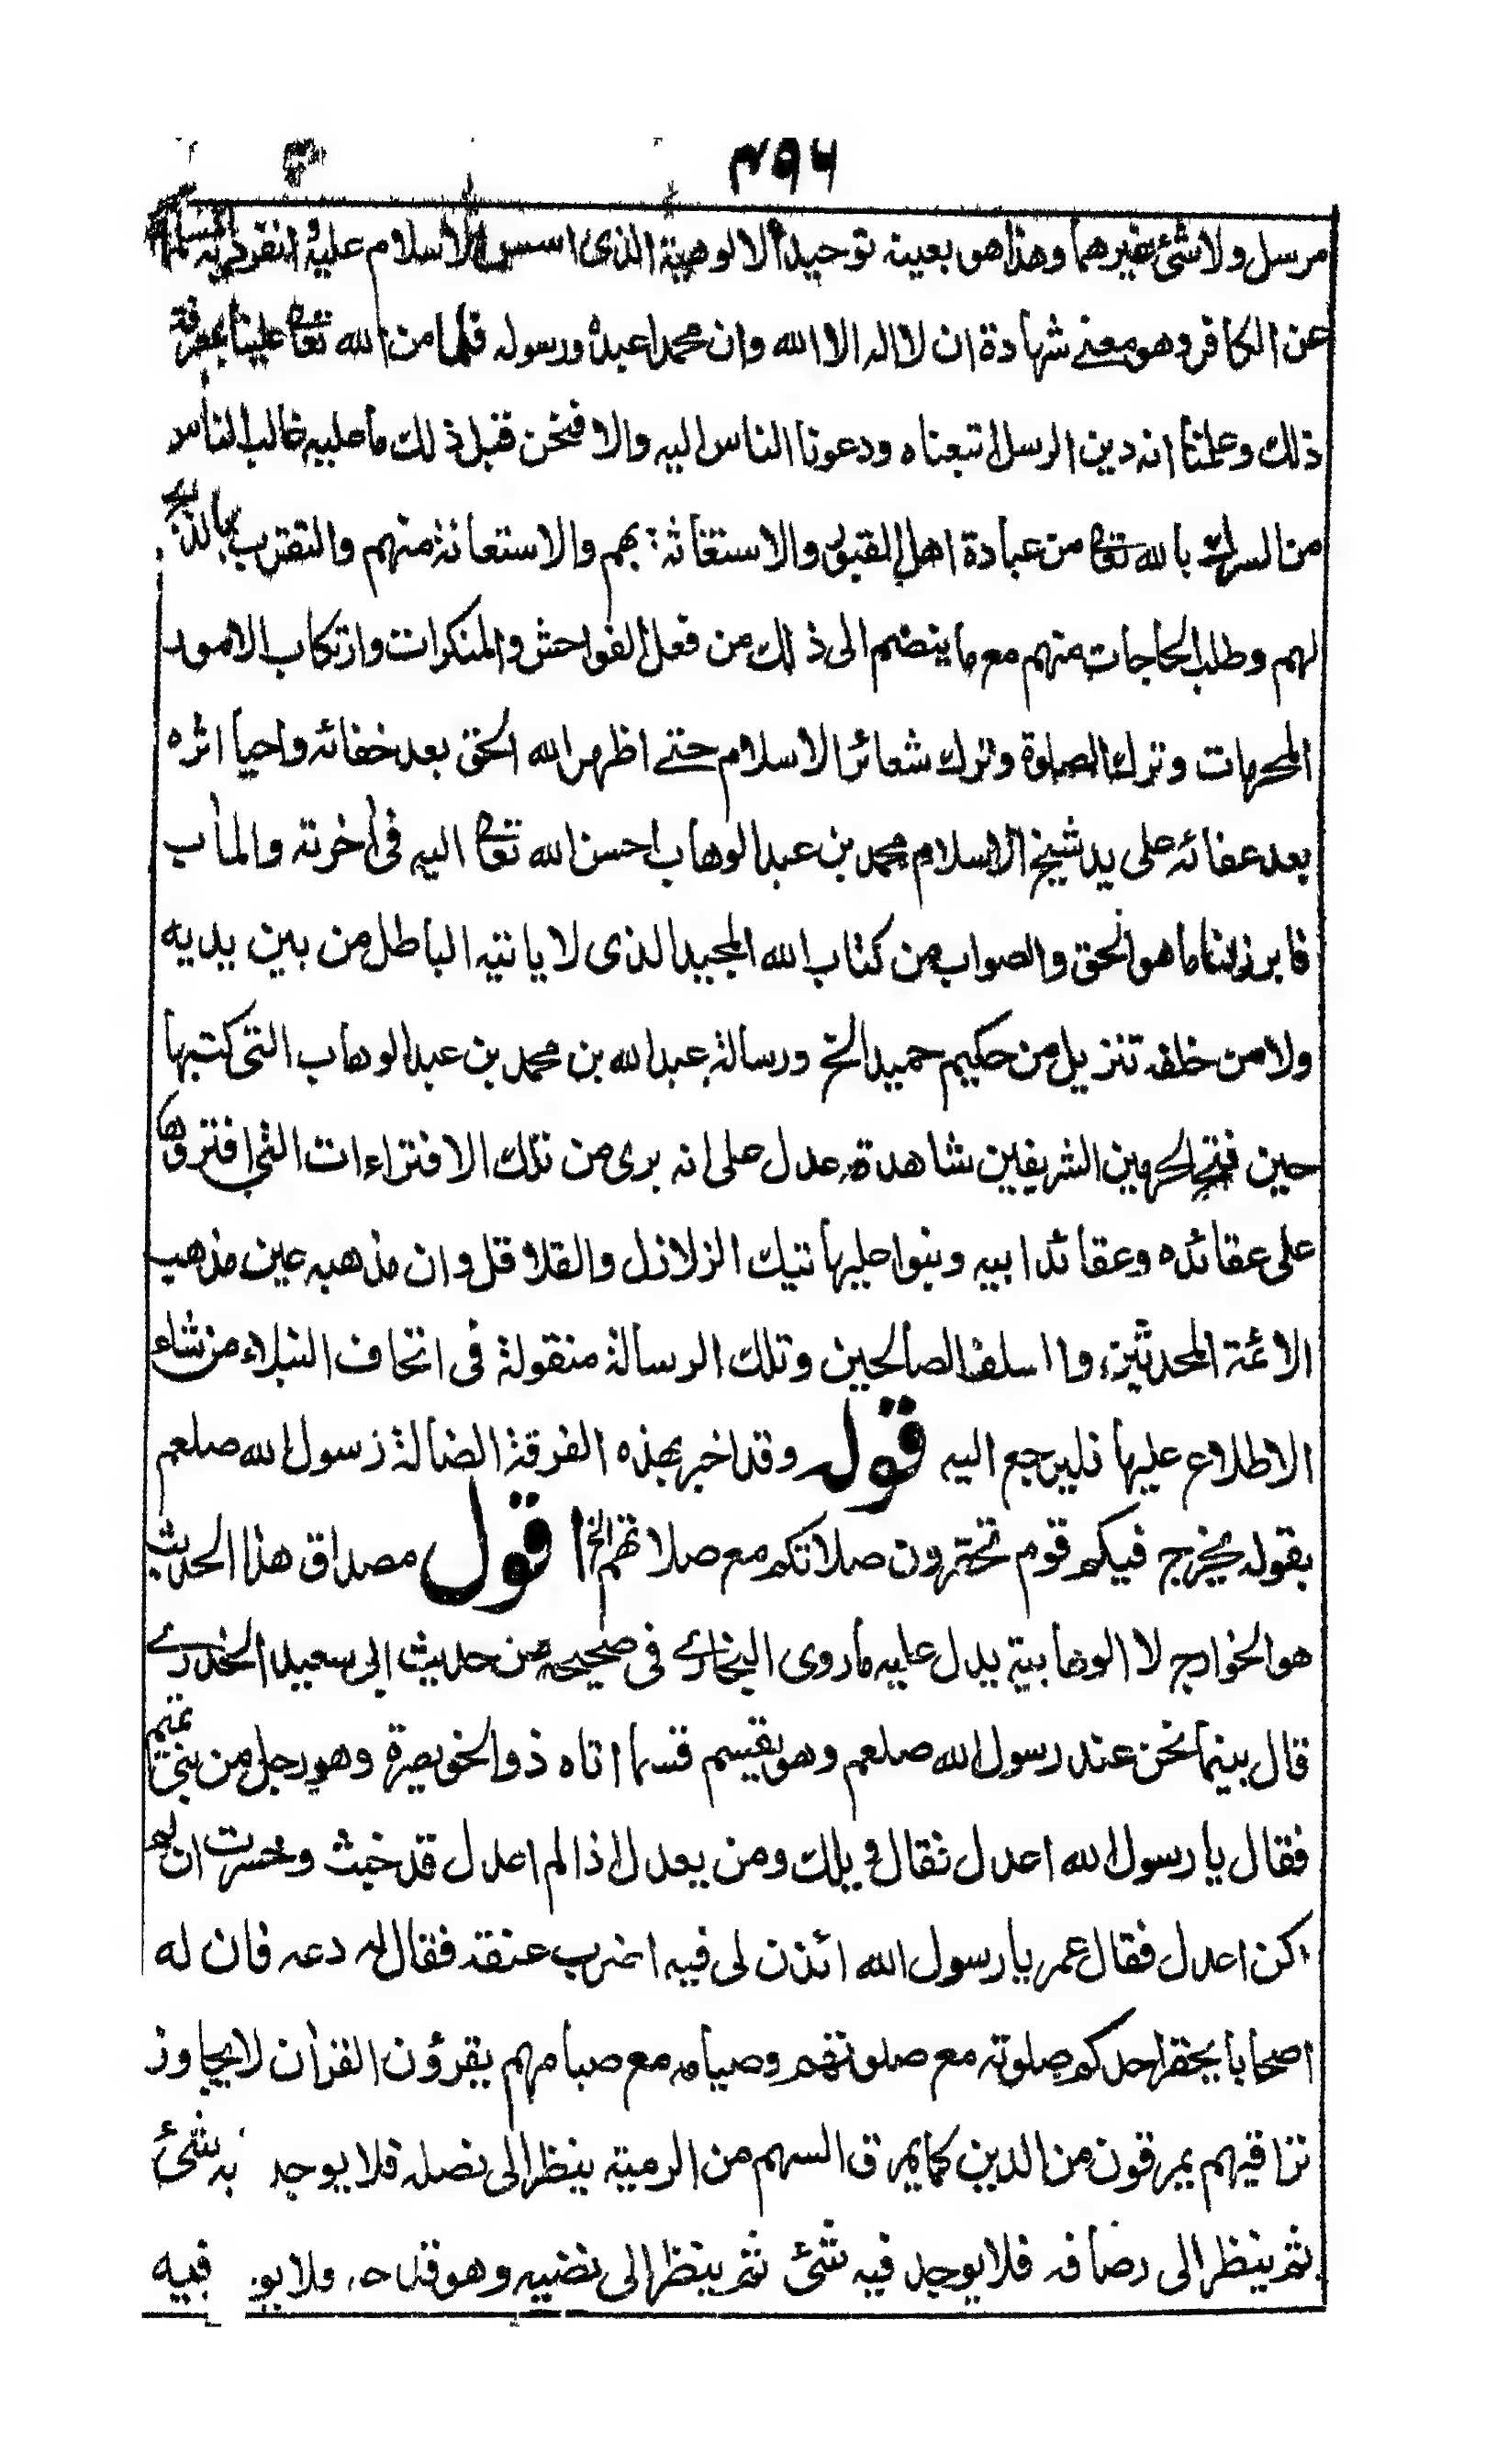 ٤٩٦
مرسل ولا شئ غيرهما وهذا هو بعينه توحيد الالوهية الذى اسس الاسلام عليه وانفرد به المسلم
عن الكافر وهو معنے شهادة ان لا اله الا الله وان محمدا عبده ورسوله فلما من الله تعا علينا بمعرفة
ذلك وعلمنا انه دين الرسل اتبعناه ودعونا الناس اليه والا فنحن قبل ذلك ما عليه غالب الناس
من الشرك بالله تعا من عبادة اهل القبور والاستغاثة بهم والاستعانة منهم والتقرب بالذبح
لهم وطلب الحاجات منهم مع ما ينضم الى ذلك من فعل الفواحش والمنكرات وارتكاب الامور
المحرمات وترك الصلوة وترك شعائر الاسلام حتے اظهر الله الحق بعد خفائه واحيا اثره
بعد عفائه على يد شيخ الاسلام محمد بن عبد الوهاب احسن الله تعا اليه فى أخرته والمأب
فابرز لنا ما هو الحق والصواب من كتاب الله المجيد الذى لا ياتيه الباطل من بين يديه
ولا من خلفه تنزيل من حكيم حميد الخ ورسالة عبد الله بن محمد بن عبد الوهاب التى كتبها
حين فتح الحرمين الشريفين شاهدة عدل على انه برى من تلك الافتراءات التى افتروها
على عقائده وعقائد ابيه وبنوا عليها تيك الزلازل والقلاقل وان مذهبه عين مذهب
الائمة المحدثين والسلف الصالحين وتلك الرسالة منقولة فى اتحاف النبلاء من شاء
الاطلاع عليها فليرجع اليه قوله وقد اخبر بهذه الفرقة الضالة رسول الله صلعم
بقوله يخرج فيكم قوم تحقرون صلاتكم مع صلاتهم الخ اقول مصداق هذا الحديث
هو الخوارج لا الوهابية يدل عليه ما روى البخارے فى صحيحه من حديث ابى سعيد الخدرے
قال بينما نحن عند رسول الله صلعم وهو يقسم قسما اتاه ذو الخويصرة وهو رجل من بنى تميم
فقال يا رسول الله اعدل فقال ويلك ومن يعدل اذا لم اعدل قد خبت وخسرت ان لم
اكن اعدل فقال عمر يا رسول الله ائذن لى فيه اضرب عنقه فقال له دعه فان له
اصحابا يحقر احدكم صلوته مع صلوتهم وصيامه مع صيامهم يقرؤن القرأن لا يجاوز
تراقيهم يمرقون من الدين كما يمرق السهم من الرمية ينظر الى نصله فلا يوجد به شئ
ثم ينظر الى رصافه فلا يوجد فيه شئ ثم ينظر الى نضيه وهو قدحه فلا يو فيه